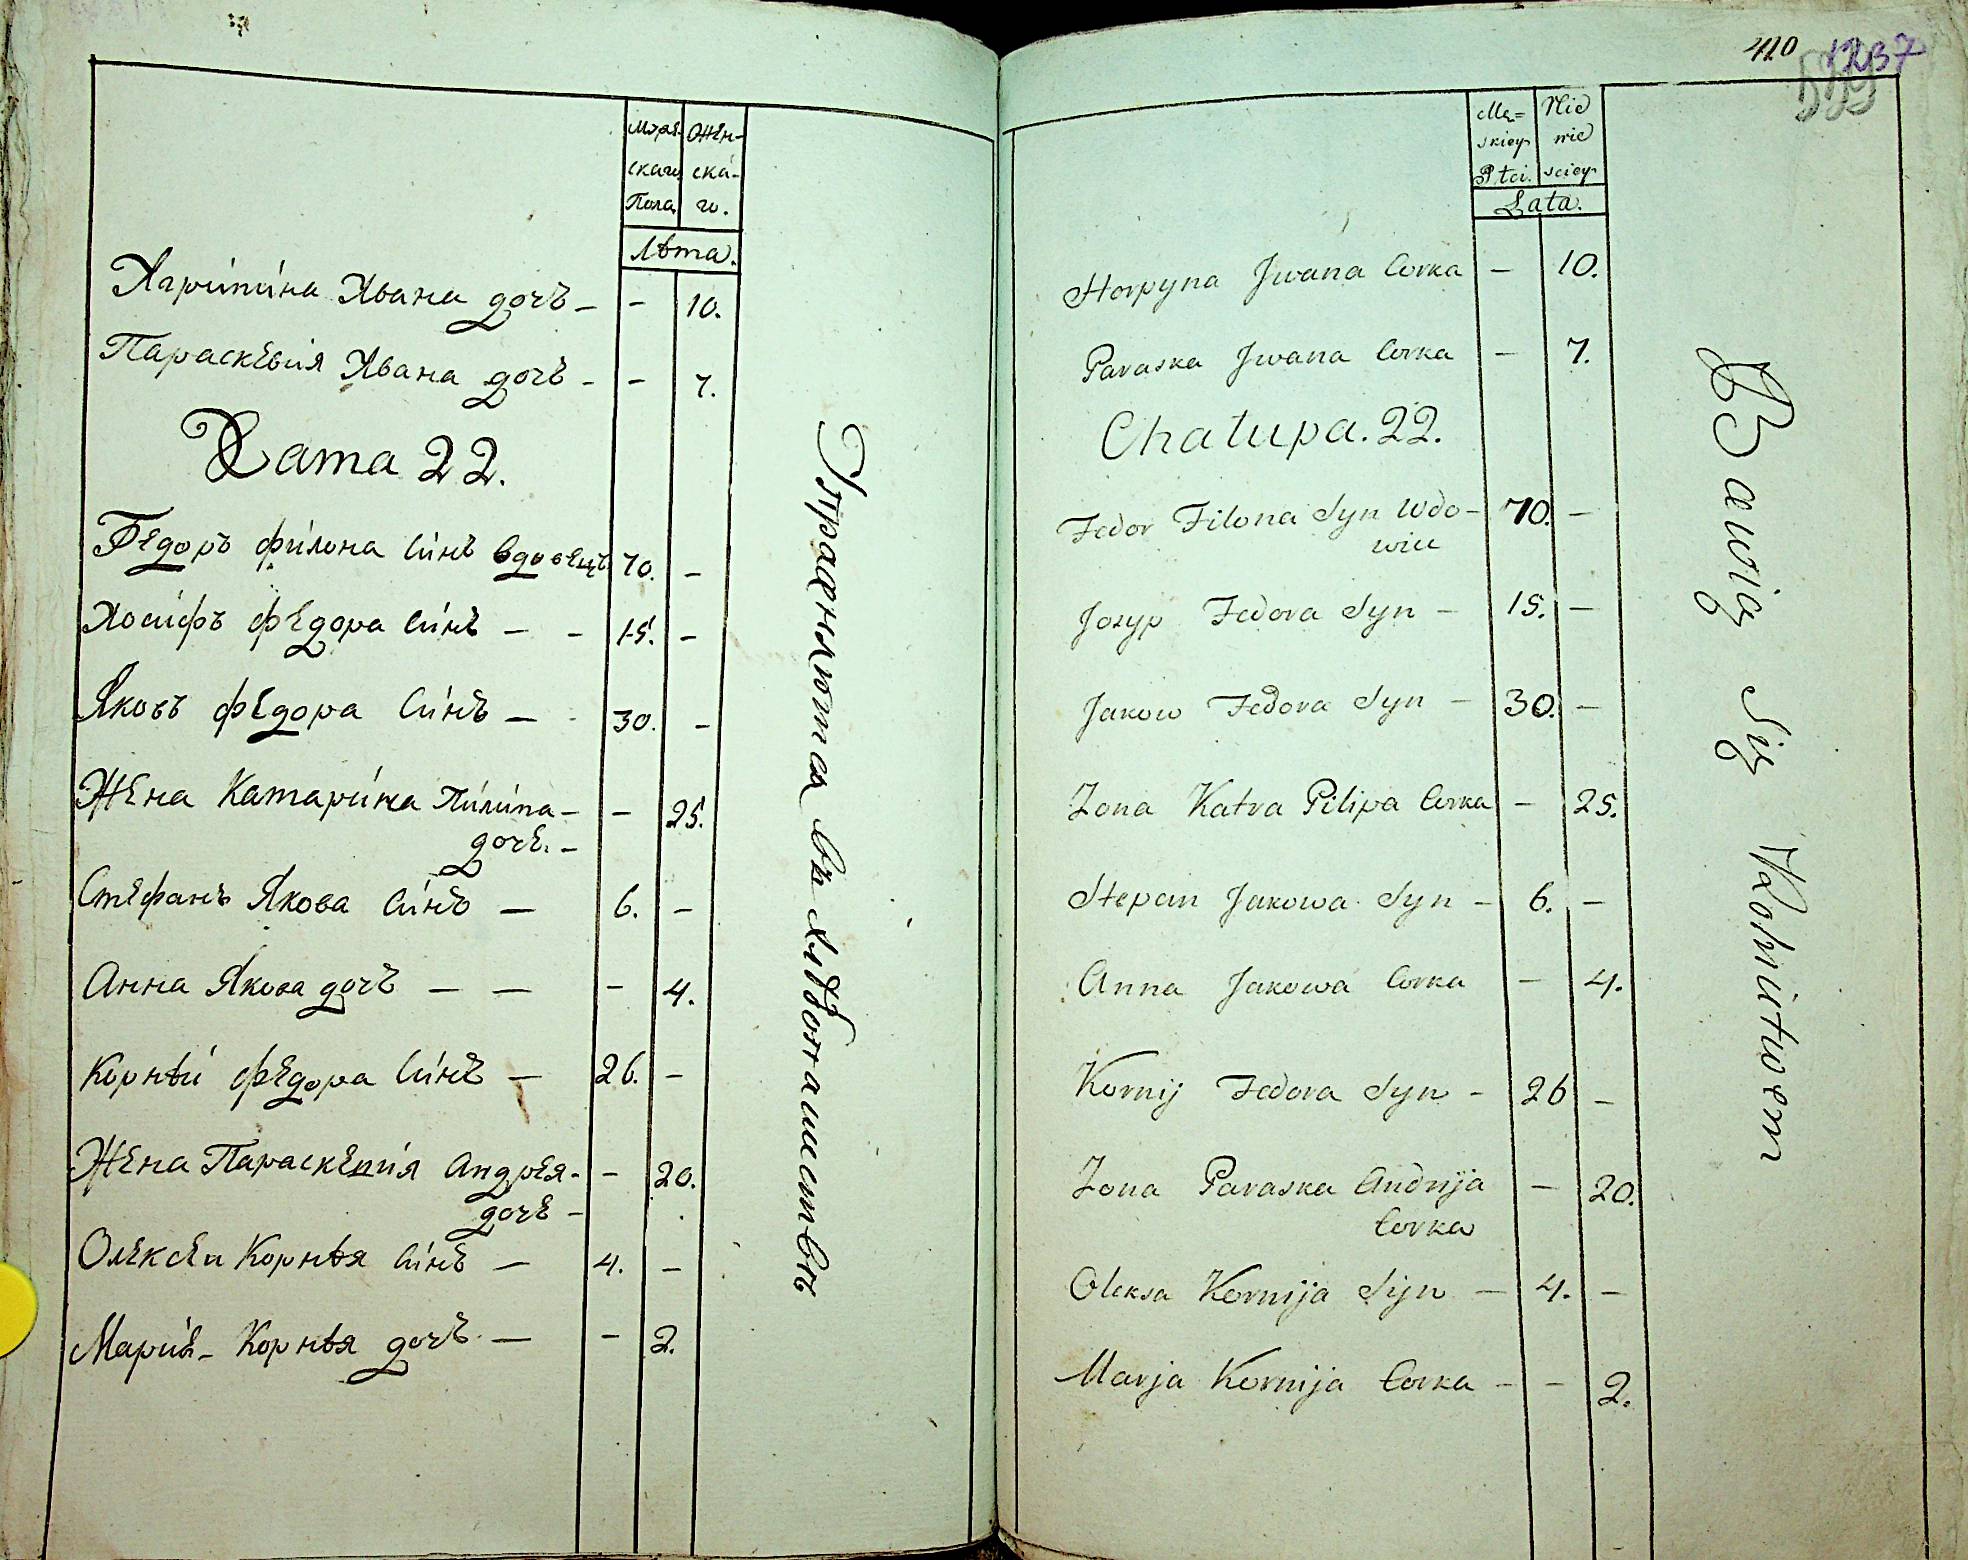 Муже- Жен-
скаго ска-
Пола го.
Лѣта.
Агрипина Ивана дочъ - - 10.
Параскевия Ивана дочъ - - 7.
Хата 22.
Федоръ филона синъ вдовецъ 70. -
Иосифъ федора синъ - - 15. -
Яковъ федора синъ - - 30. -
Жена Катарина Пилипа - - 25.
дочъ. -
Стефанъ Якова синъ - 6. -
Анна Якова дочъ - - - 4.
Корнѣй федора синъ - 26. -
Жена Параскевия Андрея - - 20.
дочъ -
Олексеи Корнѣя синъ - 4. -
Мария - Корнѣя дочъ - - 2.
Упражняются въ хлѣбопашествѣ
410 1237
Mę= Nie
skiey wie
Płci. sciey
Lata.
Horpyna Jwana Corka - 10.
Paraska Jwana Corka - 7.
Chałupa. 22.
Fedor Filona Syn Wdo- 70. -
wiec
Josyp Fedora Syn - 15. -
Jakow Fedora Syn - 30. -
Zona Katra Pilipa Corka - 25.
Stepan Jakowa Syn - 6. -
Anna Jakowa Corka - 4.
Kornij Fedora Syn - 26 -
Zona Paraska Andrija - 20.
Corka
Oleksa Kornija Syn - 4. -
Marja Kornija Corka - - 2.
Bawią Się Rolnictwem